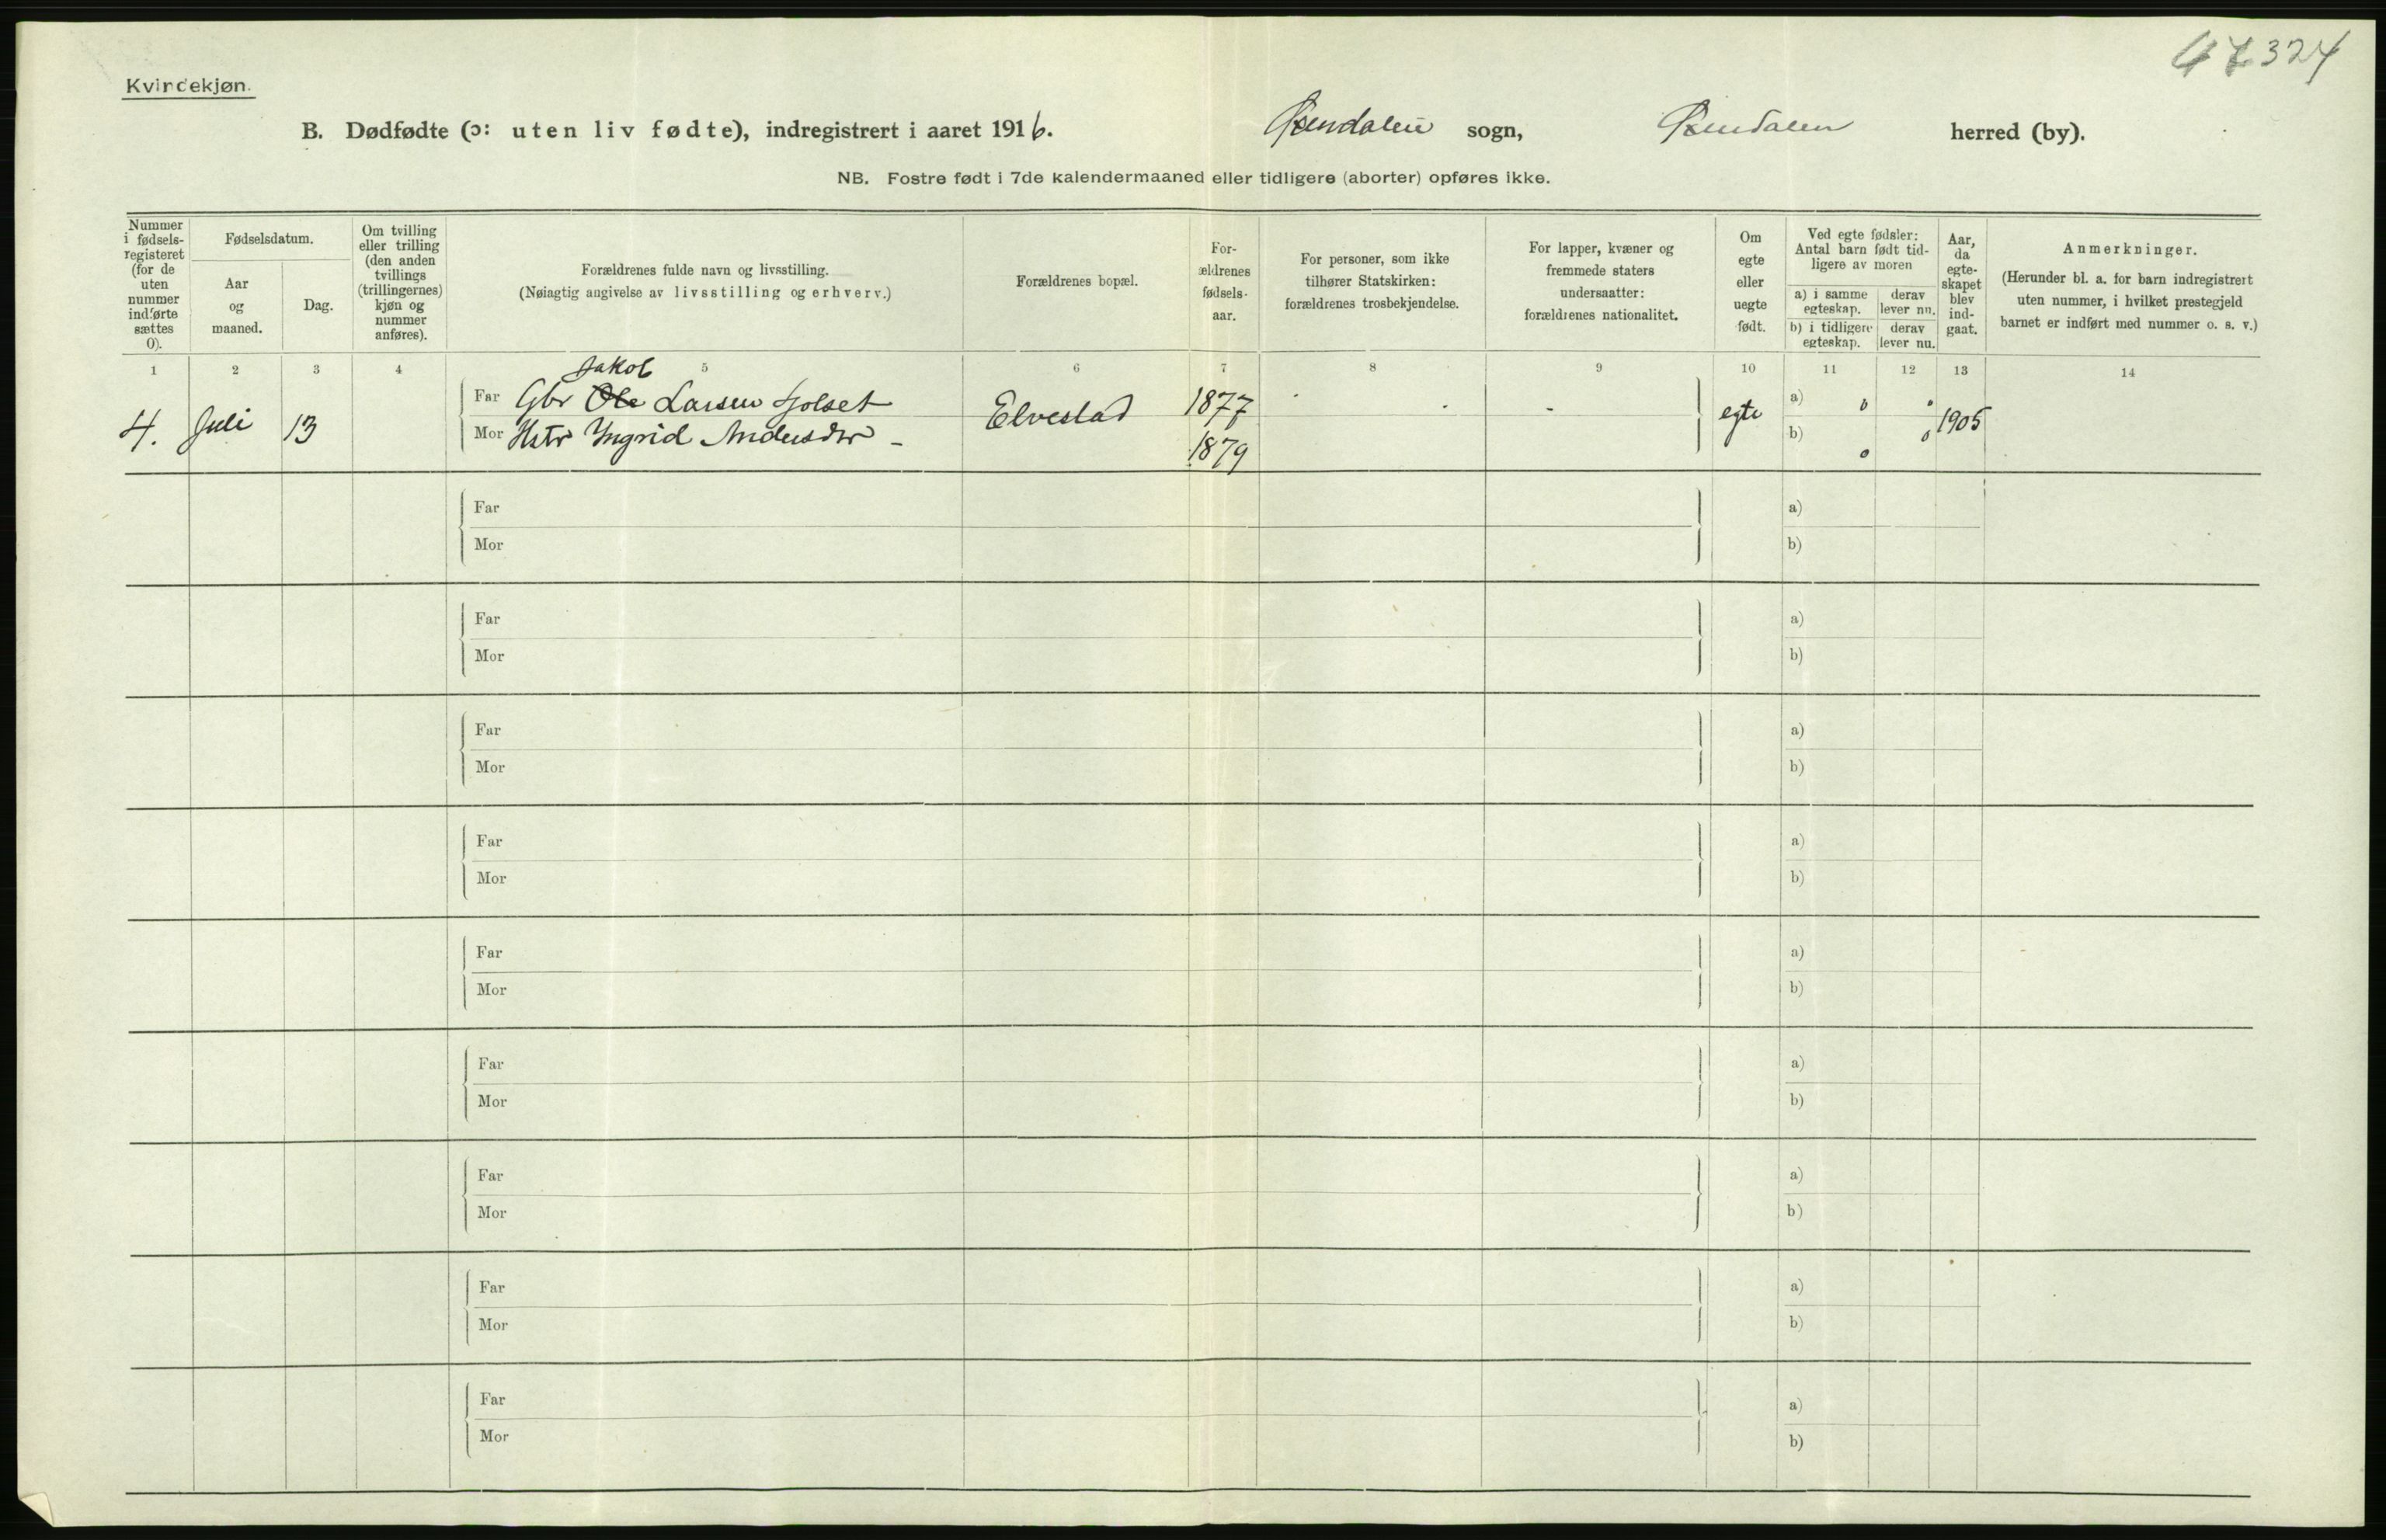 47324
Kvindekjøn.
B. Dødfødte (ɔ: uten liv fødte), indregistrert i aaret 1916. Øxendalen sogn, Øxendalen herred (by).
NB. Fostre født i 7de kalendermaaned eller tidligere (aborter) opføres ikke.
Nummer
i fødsels-
registeret
(for de
uten
nummer
indførte
sættes
0).
Fødselsdatum.
Aar
og
maaned.
Dag.
Om tvilling
eller trilling
(den anden
tvillings
(trillingernes)
kjøn og
nummer
anføres).
Forældrenes fulde navn og livsstilling.
(Nøiagtig angivelse av livsstilling og erhverv.)
Forældrenes bopæl.
For-
ældrenes
fødsels-
aar.
For personer, som ikke
tilhører Statskirken:
forældrenes trosbekjendelse.
For lapper, kvæner og
fremmede staters
undersaatter:
forældrenes nationalitet.
Om
egte
eller
uegte
født.
Ved egte fødsler:
Antal barn født tid-
ligere av moren
a) i samme
egteskap.
derav
lever nu.
b) i tidligere
egteskap.
derav
lever nu.
Aar,
da
egte-
skapet
blev
ind-
gaat.
Anmerkninger.
(Herunder bl. a. for barn indregistrert
uten nummer, i hvilket prestegjeld
barnet er indført med nummer o. s. v.)
1 2 3 4 5 6 7 8 9 10 11 12 13 14
Jakob
Far Gbr Ole Larsen
4. Juli 13
Mor Hstr Ingrid Andersdtr -
Elvestad
1877
1879
-
egte
a) 0 0
b) 0 0
1905
Far a)
Mor b)
Far a)
Mor b)
Far a)
Mor b)
Far a)
Mor b)
Far a)
Mor b)
Far a)
Mor b)
Far a)
Mor b)
Far a)
Mor b)
Far a)
Mor b)